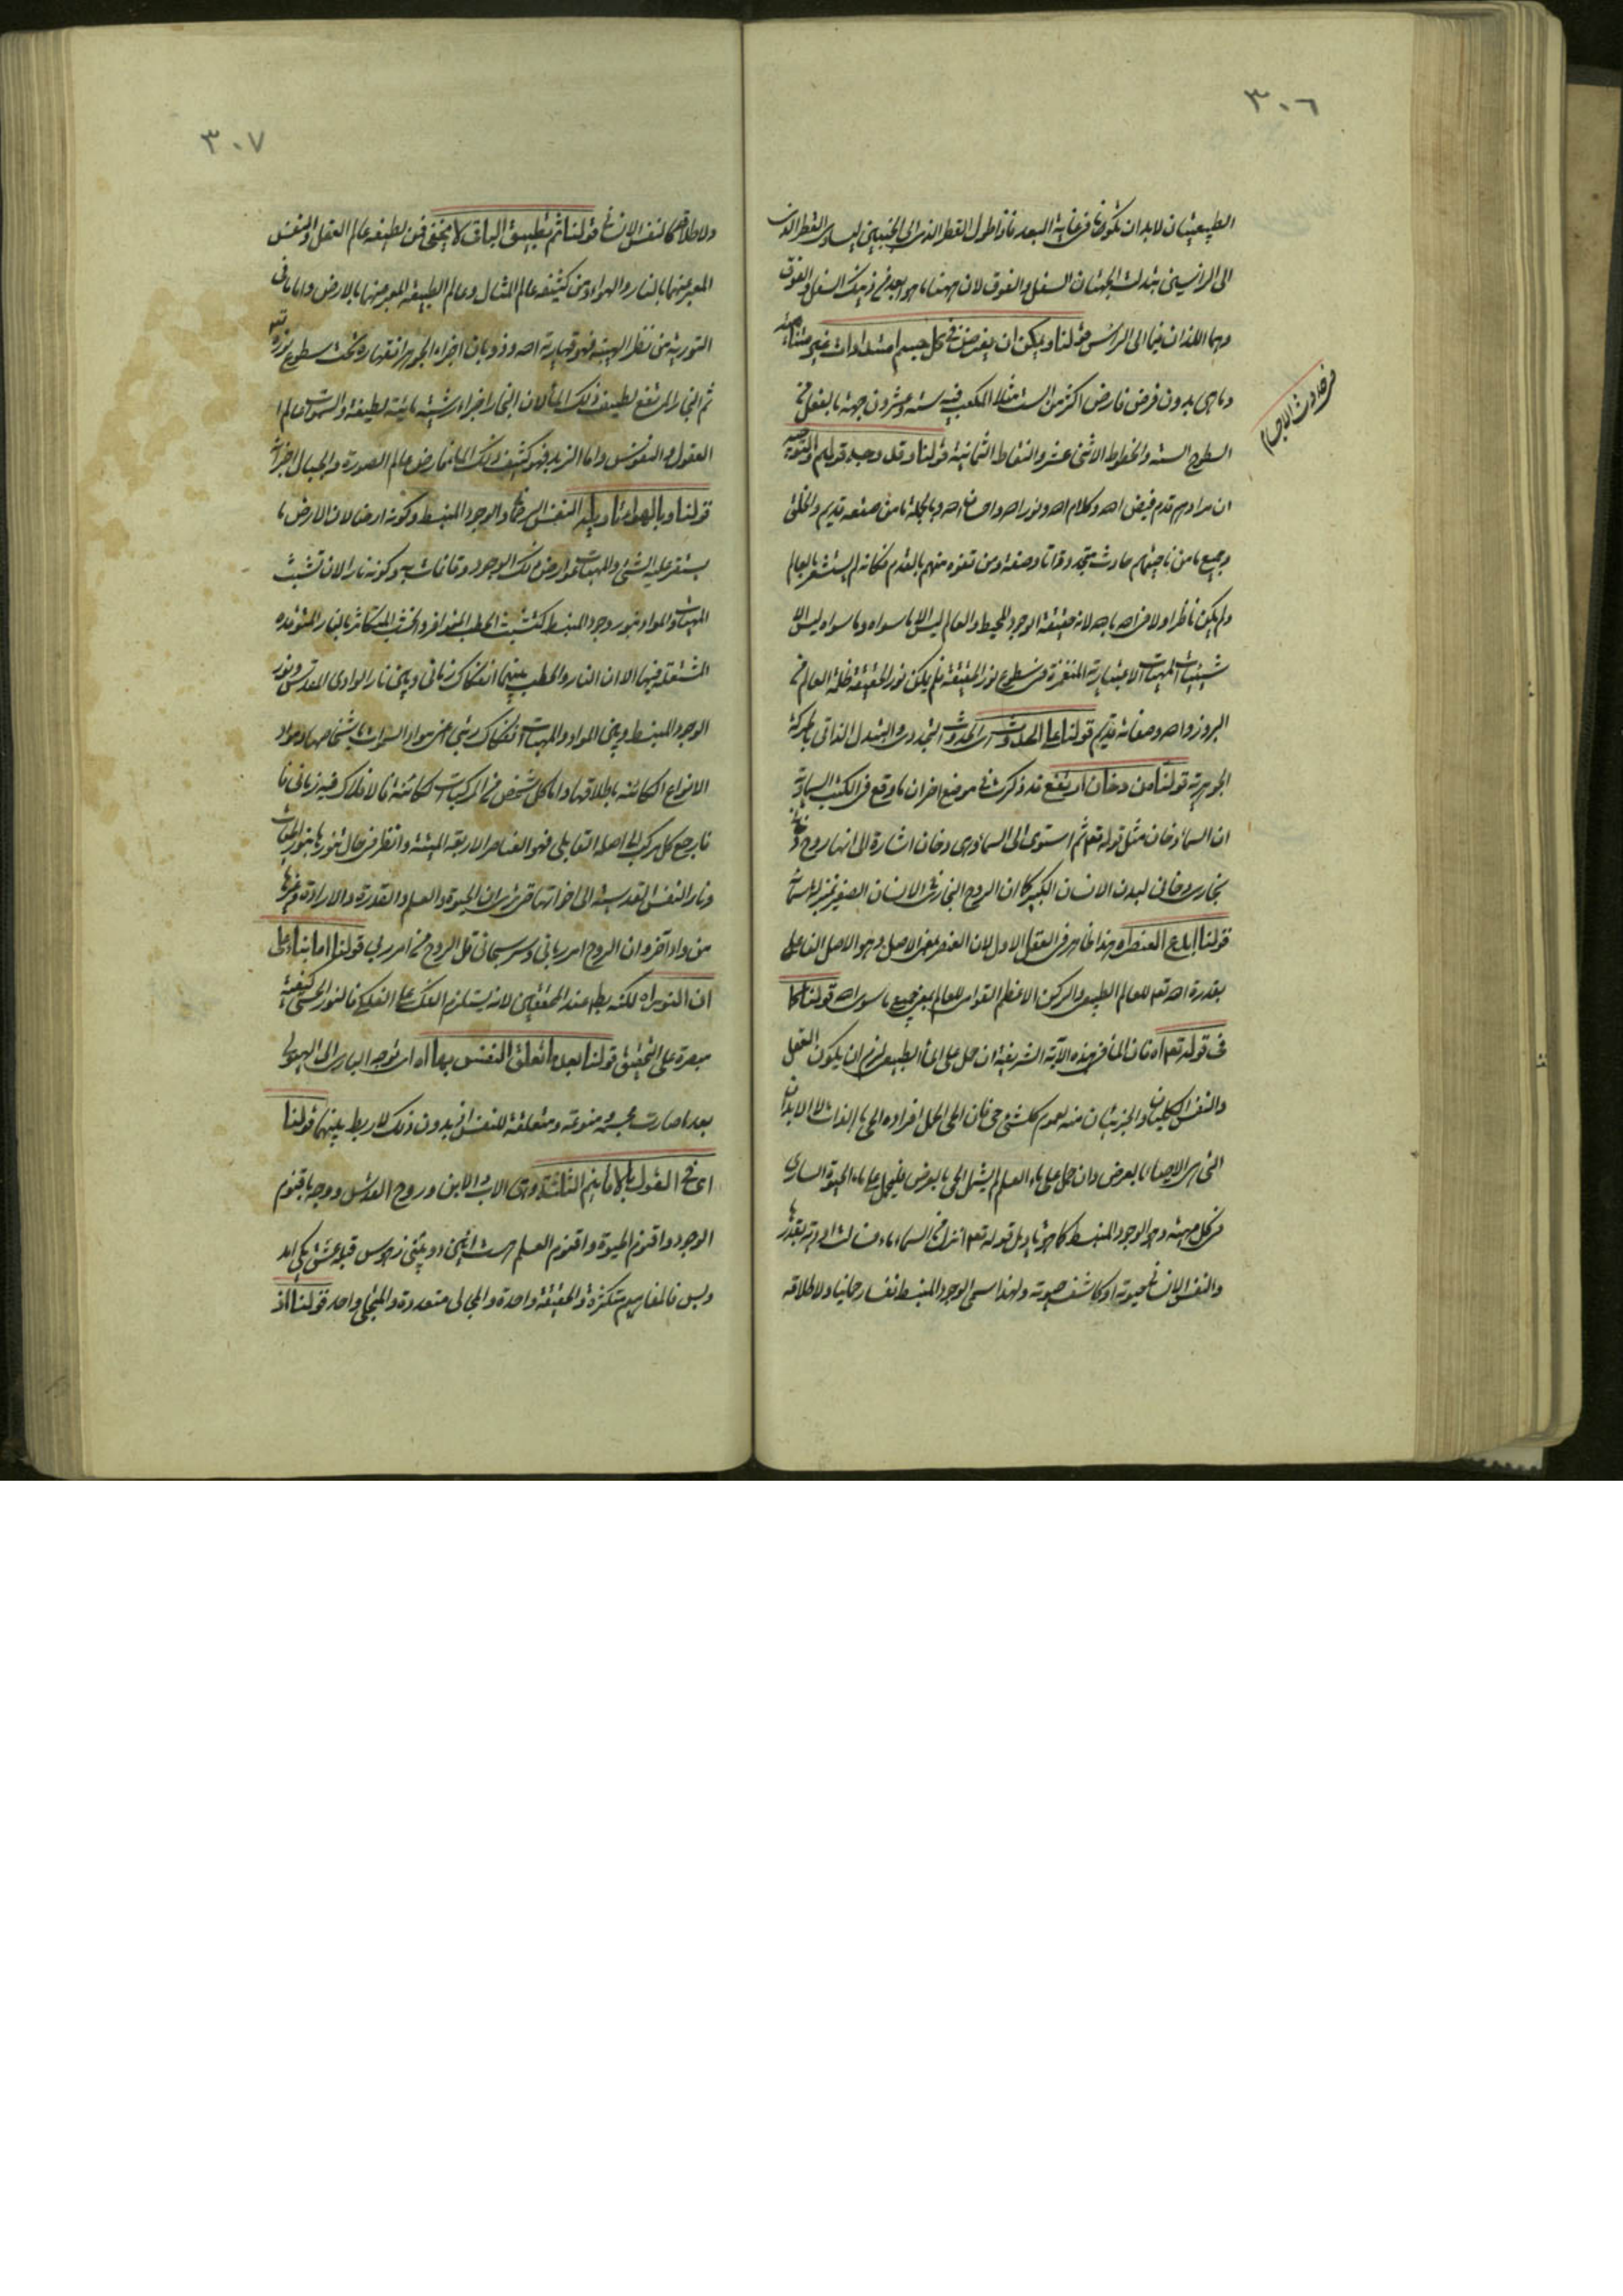 ٣٠٦
الطبيعيتان لابدان تكونا فى غاية البعد فاذا طول القطر الذى الى الجنبين ليساوى القطر الذى
الى الراسين تبدلت الجهتان السفل والفوق لان ههنا ما هو ابعد من ذينك السفل والفوق
وهما اللذان فيما الى الراس قولنا ويمكن ان يفرض فى كل جسم امتدادات غير متناهية
وماهى بدون فرض فارض اكثر من الست مثلا المكعب فيه ستة وعشرون جهة بالفعل من
السطوح الستة والخطوط الاثنى عشر والنقاط الثمانية قولنا وقل وجه قولهم والتوجيه
فى حدوث الاجسام
ان مرادهم قدم فيض الله وكلام الله ونور الله واحسان الله وبالجملة ما من صقعه قديم والخلق
وجميع ما من ناحيتهم حادث متجدد ذاتا وصفة ومن تفوه منهم بالقدم فكانه لم يستشعر بالعالم
ولم يكن ناظرا ولا فى الله بالله لانه حقيقة الوجود المحيط والعالم ليس الا ما سواه وما سواه ليس الا
شيئيات المهيات الاعتبارية المتقررة فى سطوع نور الحقيقة فلم يكن نور الحقيقة ظلمة العالم من
البروز والله وصفاته قديم قولنا على الحدوث اى الحدوث التجددى والتبدل الذاتى بالحركة
الجوهرية قولنا من دخان ارتفع قد ذكرت فى موضع اخر ان ما وقع فى الكتب السماوية
ان السماء دخان مثل قوله تعم ثم استوى الى السماء وهى دخان اشارة الى انها روح
بخارى دخانى لبدن الانسان الكبير كما ان الروح البخارى فى الانسان الصغير بمنزلة سماء
قولنا ابدع العنصر اه هذا ظاهر فى العقل الاول لان العنصر بمعنى الاصل وهو الاصل الفاعلى
بقدرة الله تعم للعالم الطبيعى والركن الاعظم القوامى للعالم بمعنى جميع ما سوى الله قولنا كما
فى قوله تعم اه فان الماء فى هذه الآية الشريفة ان حمل على الماء الطبيعى لزم ان يكون العقل
والنفس الكليتان والجزئيتان منه لعموم كل شئ حى فان الحى اكمل افراده الحى بالذات لا الابدان
التى هى الاحياء بالعرض وان حمل على ماء العلم لم يشمل الحى بالعرض فليحمل على ماء الحيوة السارى
فى كل مهية وهو الوجود المنبسط كما هو تاويل قوله تعم انزل من السماء ماء فسالت اودية بقدرها
والنفس الانسانى لحيوته او كاشف حيوته ولهذا سمى الوجود المنبسط نفسا رحمانيا ولاطلاقه
٣٠٧
ولاطلاقه كالنفس الانسانى قولنا ثم تطبيق الباقى لا يخفى فمن لطيفه عالم العقل والنفس
المعبر عنهما بالنار والهواء ومن كثيفه عالم المثال وعالم الطبيعة المعبر عنهما بالارض واما ما فى
التورية من نظر الهيبة فهو قهارية الله وذوبان اجزاء الجوهر انقهاره تحت سطوع نوره
ثم البخار المرتفع لطيف ذلك الماء لان البخار اجزاء رشية مائية لطيفة والسموات عالم
العقول والنفوس واما الزبد فهو كثيف ذلك الماء فارض عالم الصورة والجبال اجزائه
قولنا وبالهواء تاويله النفس الرحمانى والوجود المنبسط وكونه ارضا لان الارض ما
يستقر عليه الشئ والمهيات عوارض ذلك الوجود وقائمات به وكونه نارا لان تشبث
المهيات والمواد بنور وجود المنبسط كتشبث الحطب المتوافر والخشب المتكاثر بالنار المتوقدة
المشتعلة فيها الا ان النار والحطب بينهما انفكاك زمانى وبين نار الوادى المقدس ونور
الوجود المنبسط وبين المواد والمهيات انفكاك رتبى اعنى مواد السموات باشخاصها ومواد
الانواع الكائنة باطلاقها واما كل شخص من المركبات الكائنة فالانفكاك فيه زمانى
فارجع كل مركب الى اصله القابلى فهو العناصر الاربعة الميتة وانظر فى حال تنورها بنور الحيوة
ونار النفس القدسية الى اخواتها حتى تريه ان الحيوة والعلم والقدرة والارادة وغيرها
من واد آخر وان الروح امر ربانى وسر سبحانى قل الروح من امر ربى قولنا اما بناء على
ان النور اه لكنه بط عند المحققين لانه يستلزم الفك على الفلك فالنور الحسى كيفية
مبصرة على التحقيق قولنا بعد ما تعلق النفس بها اه اى توجه البارى الى الهيولى
بعد ما صارت مجسمة منوعة ومتعلقة للنفس اذ بدون ذلك لا ربط بينهما قولنا
اى فى القول بالاقانيم الثلثة وهى الاب والابن وروح القدس ووجه باقنوم
الوجود واقنوم الحيوة واقنوم العلم هست ائين دو بينى زهوس قبله عشق يكى امد
وبس فالمفاهيم متكثرة والحقيقة واحدة والمجالى متعددة والمتجلى واحد قولنا اذ